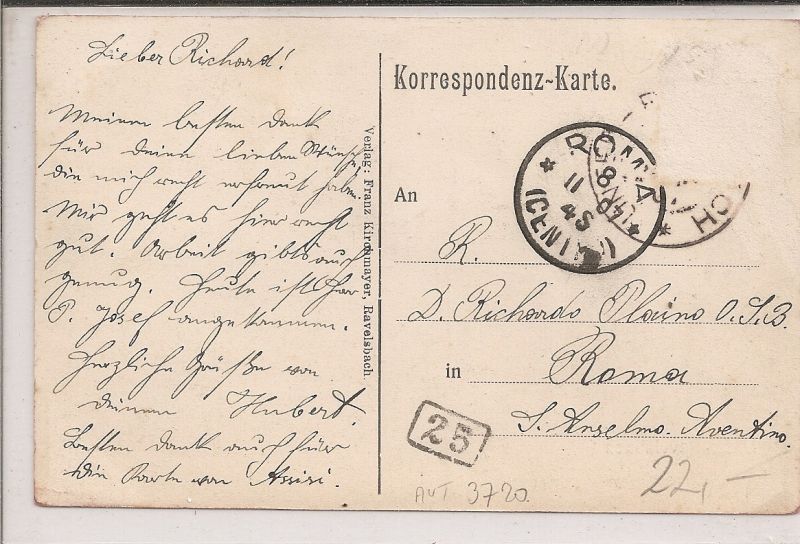 Lieber Richard!
Meinen besten Dank
für Deine lieben Wünsche
die mich recht erfreut haben.
Mir geht es hier recht
gut. Arbeit gibts auch
genug. Heute ist Herr
P. Josef angekommen.
Herzliche Grüße von
deinem Hubert.
Besten Dank auch für
die Karte von Assisi.
Verlag: Franz Kirchmayer, Ravelsbach.
Korrespondenz-Karte.
ROMA
8
11
4S
An
R.
D. Richardo Plaino O.S.B.
in Roma
S. Anselmo. Aventino.
25
AUT 3720
22,-